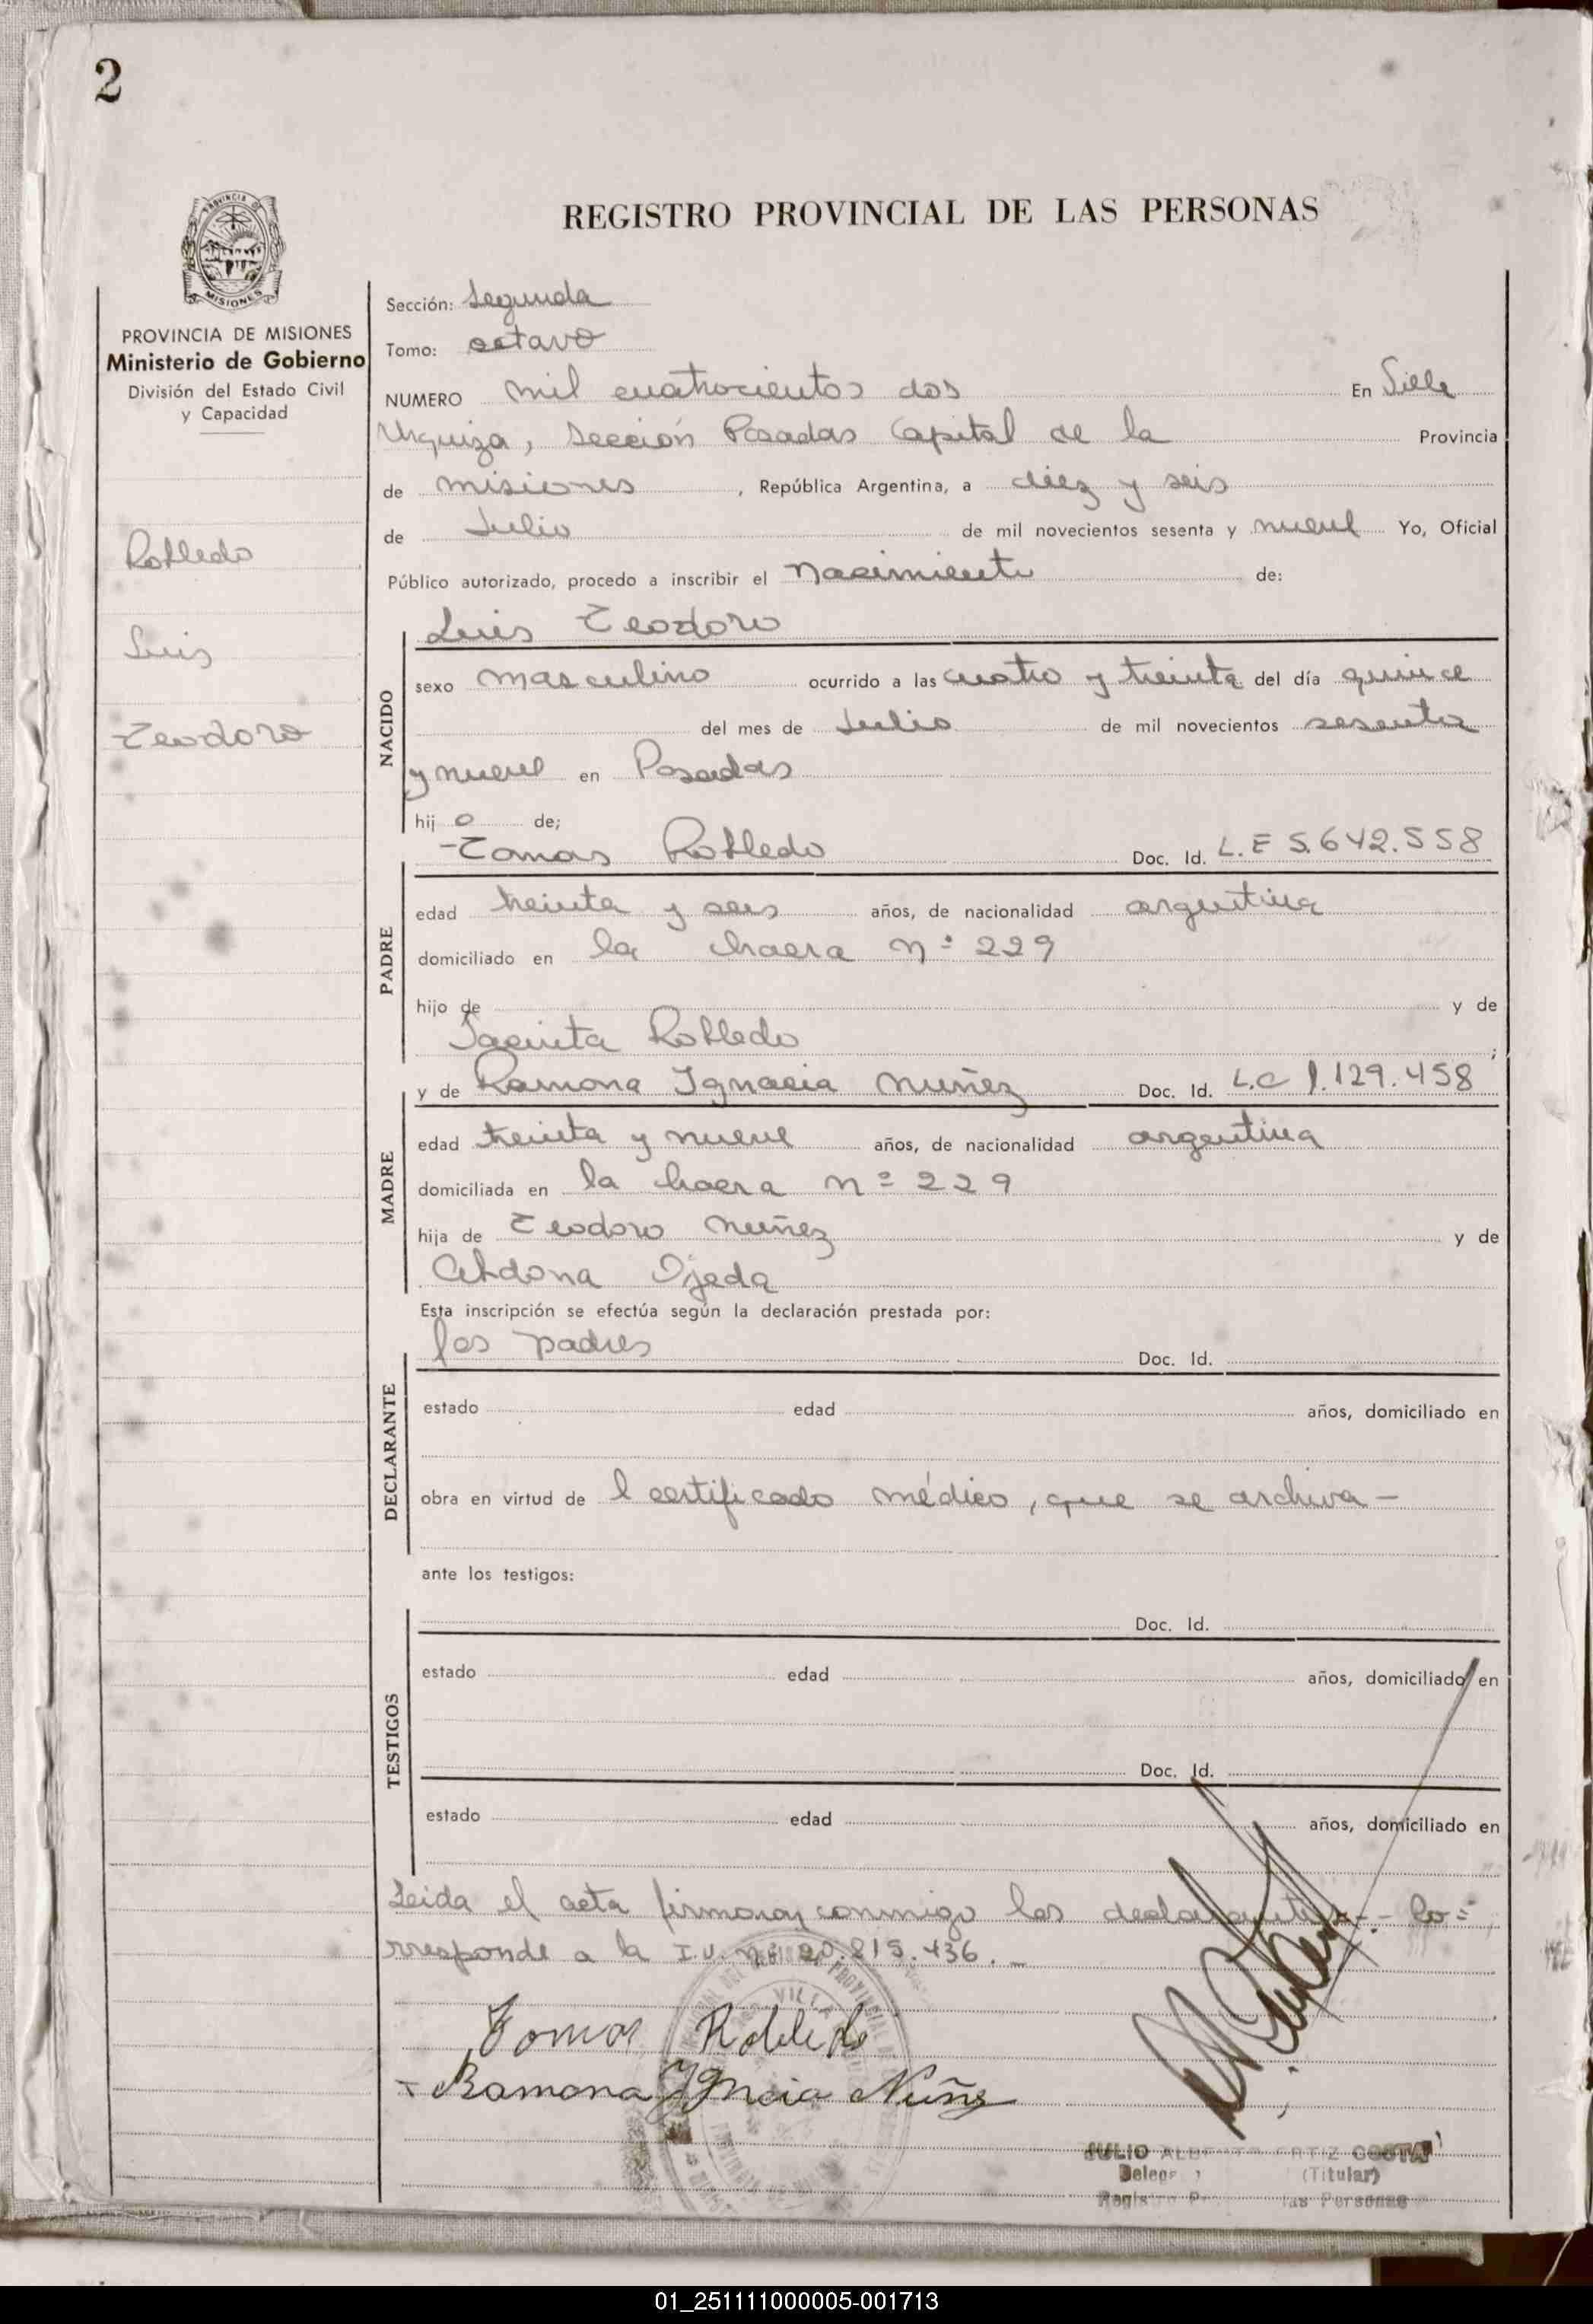 2
PROVINCIA DE MISIONES
Ministerio de Gobierno
División del Estado Civil
y Capacidad
Robledo
Luis
Teodoro
REGISTRO PROVINCIAL DE LAS PERSONAS
Sección: Segunda
Tomo: octavo
NUMERO mil cuatrocientos dos En Villa
Urquiza, Sección Posadas Capital de la Provincia
de misiones, República Argentina, a diez y seis
de Julio de mil novecientos sesenta y nueve Yo, Oficial
Público autorizado, procedo a inscribir el nacimiento de:
Luis Teodoro
NACIDO
sexo masculino ocurrido a las cuatro y treinta del día quince
del mes de Julio de mil novecientos sesenta
y nueve en Posadas
hijo de;
Tomas Robledo Doc. Id. L.E 5.642.558
PADRE
edad treinta y seis años, de nacionalidad argentina
domiciliado en la chacra nº 229
hijo de y de
Jacinta Robledo ;
y de Ramona Ignacia Nuñez Doc. Id. L.C 1.129.458
MADRE
edad treinta y nueve años, de nacionalidad argentina
domiciliada en la chacra nº 229
hija de Teodoro Nuñez y de
Abdona Ojeda
Esta inscripción se efectúa según la declaración prestada por:
los padres Doc. Id.
DECLARANTE
estado edad años, domiciliado en
obra en virtud de l certificado médico, que se archiva -
ante los testigos:
Doc. Id.
TESTIGOS
estado edad años, domiciliado en
Doc. Id.
estado edad años, domiciliado en
Leida el acta firmaran conmigo los declarantes.- Co=
rresponde a la I.U. nº 20.815.436. -
Tomas Robledo
Ramona Ignacia Nuñez
JULIO ORTIZ COSTA
(Titular)
las Personas
01_251111000005-001713